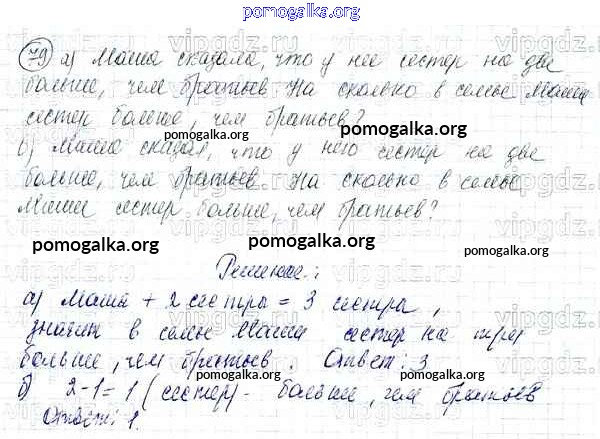 pomogalka.org
79 а) Маша сказала, что у нее сестер на две
больше, чем братьев На сколько в семье Маши
сестер больше, чем братьев?
pomogalka.org pomogalka.org
б) Миша сказал, что у него сестер на две
больше, чем братьев На сколько в семье
Миши сестер больше, чем братьев?
pomogalka.org pomogalka.org pomogalka.org
Решение:
а) Маша + 2 сестры = 3 сестры,
значит в семье Маши сестер на три
больше, чем братьев. Ответ: 3
б) 2-1=1 (сестер) - больше, чем братьев
Ответ: 1.
pomogalka.org